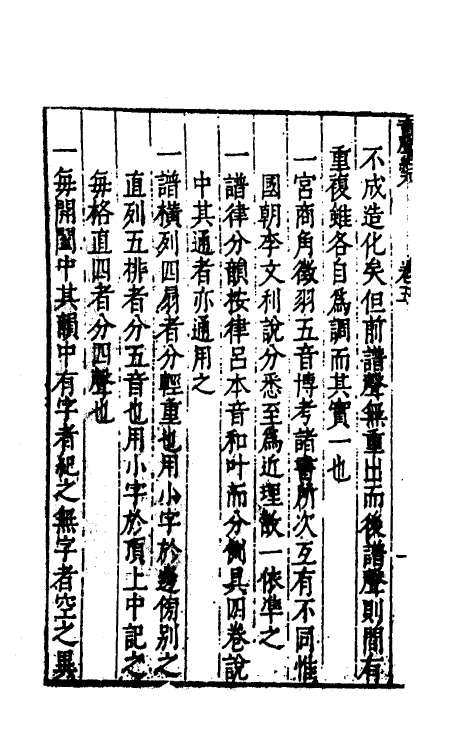 不成造化矣但前譜聲無重出而後譜聲則間有
重複雖各自為調而其實一也
一宮商角徵羽五音博考諸書所次互有不同惟
國朝李文利說分悉至為近理敬一依準之
一譜律分韻按律呂本音和叶而分側具四卷說
中其通者亦通用之
一譜橫列四扇者分輕重也用小字於邊傍別之
直列五排者分五音也用小字於頂上中記之
每格直四者分四聲也
一每開闔中其韻中有字者紀之無字者空之異